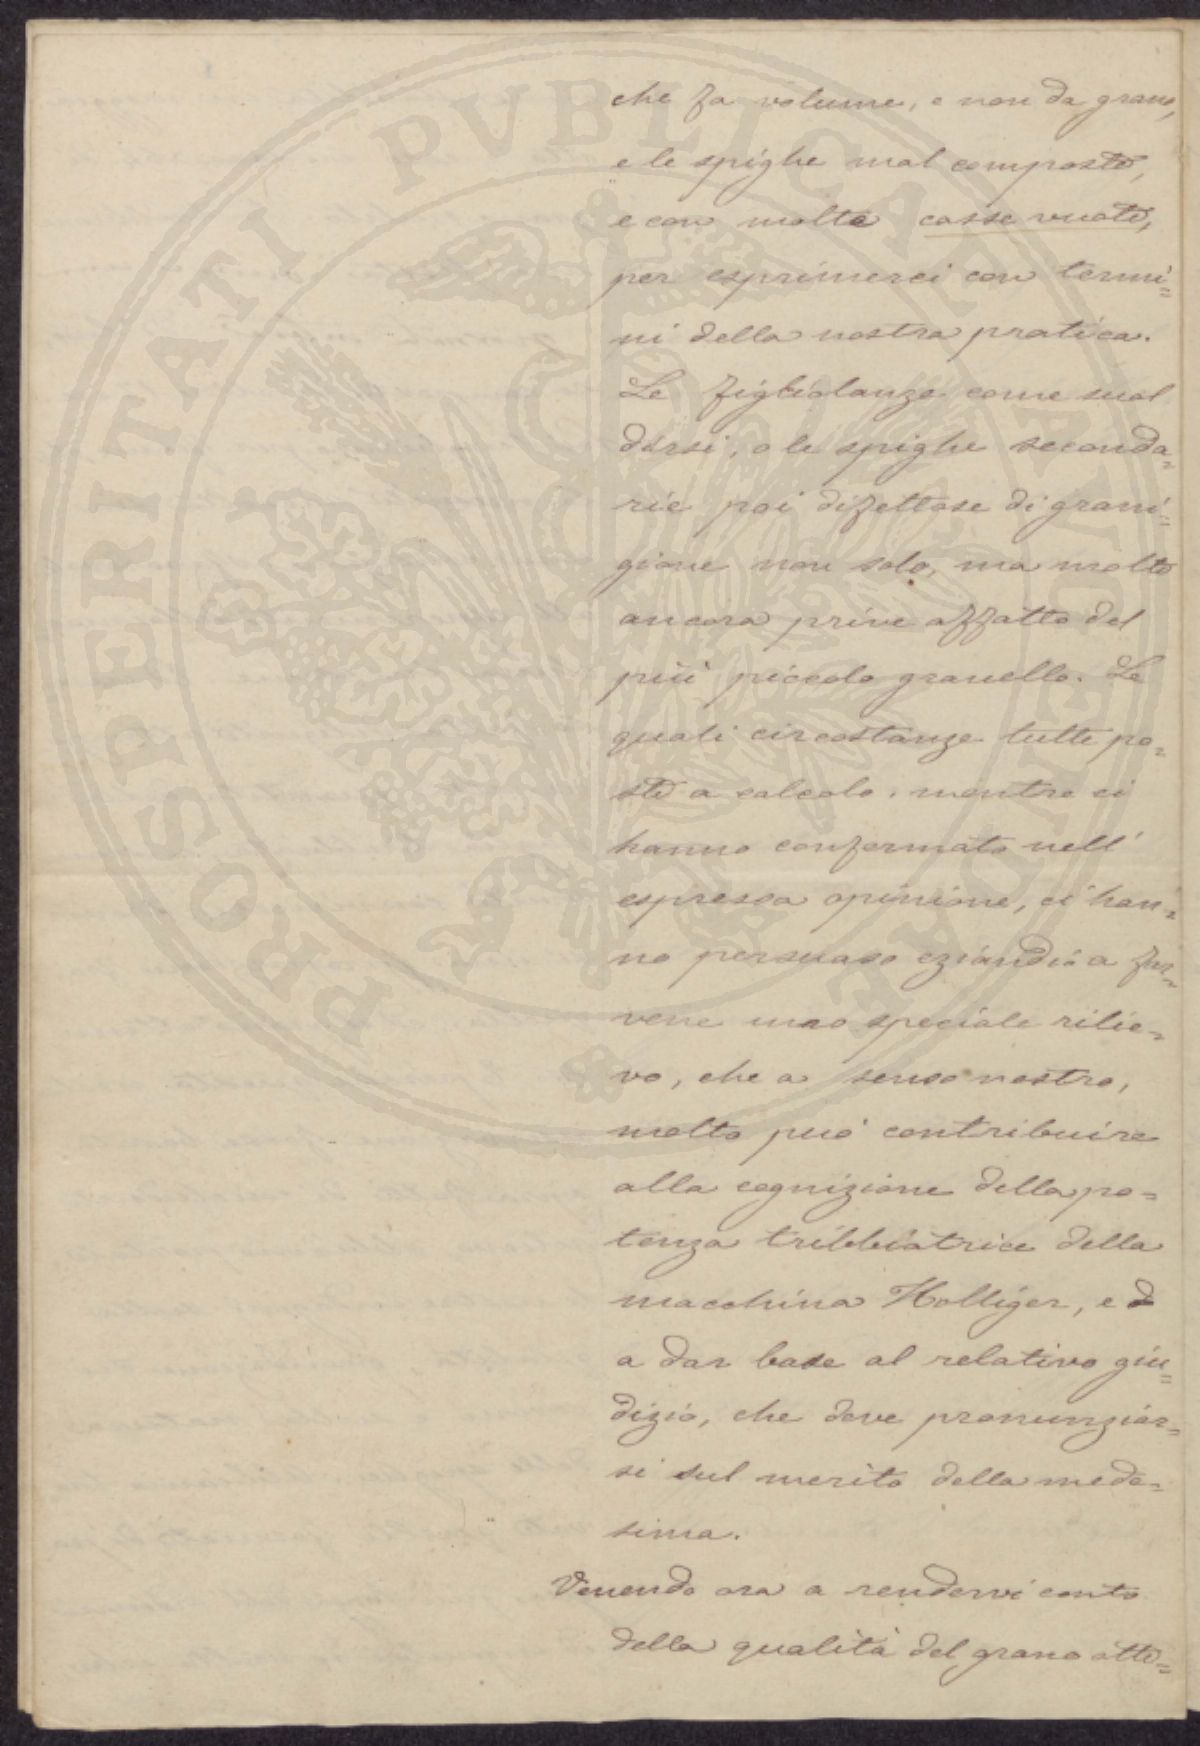 che fa volume, e non da grano,
e le spighe mal composte,
e con molte casse vuote,
per esprimerci con termi=
ni della nostra pratica.
Le figliolanze come suol
dirsi, o le spighe seconda=
rie poi difettose di grani=
gione non solo, ma molte
ancora prive affatto del
più piccolo granello. Le
quali circostanze tutte po=
ste a calcolo, mentre ci
hanno confermato nell'
espressa opinione, ci han=
no persuaso eziandio a far=
vene uno speciale rilie=
vo, che a senso nostro,
molto può contribuire
alla cognizione della po=
tenza tribbiatrice della
macchina Holliger, e
a dar base al relativo giu=
dizio, che deve pronunziar=
si sul merito della mede=
sima.
Venendo ora a rendervi conto
della qualità del grano otte=
PROSPERITATI PVBLICAE AVGENDAE